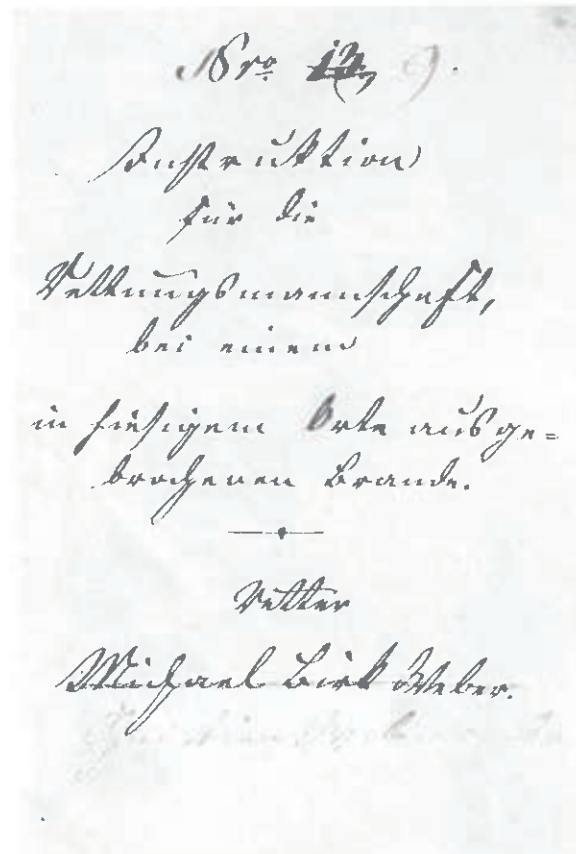 Nro 12, 9.
Instruktion
für die
Rettungsmannschaft,
bei einem
in hiesigem Orte ausge=
brochenen Brande.
Retter
Michael Birk Weber.